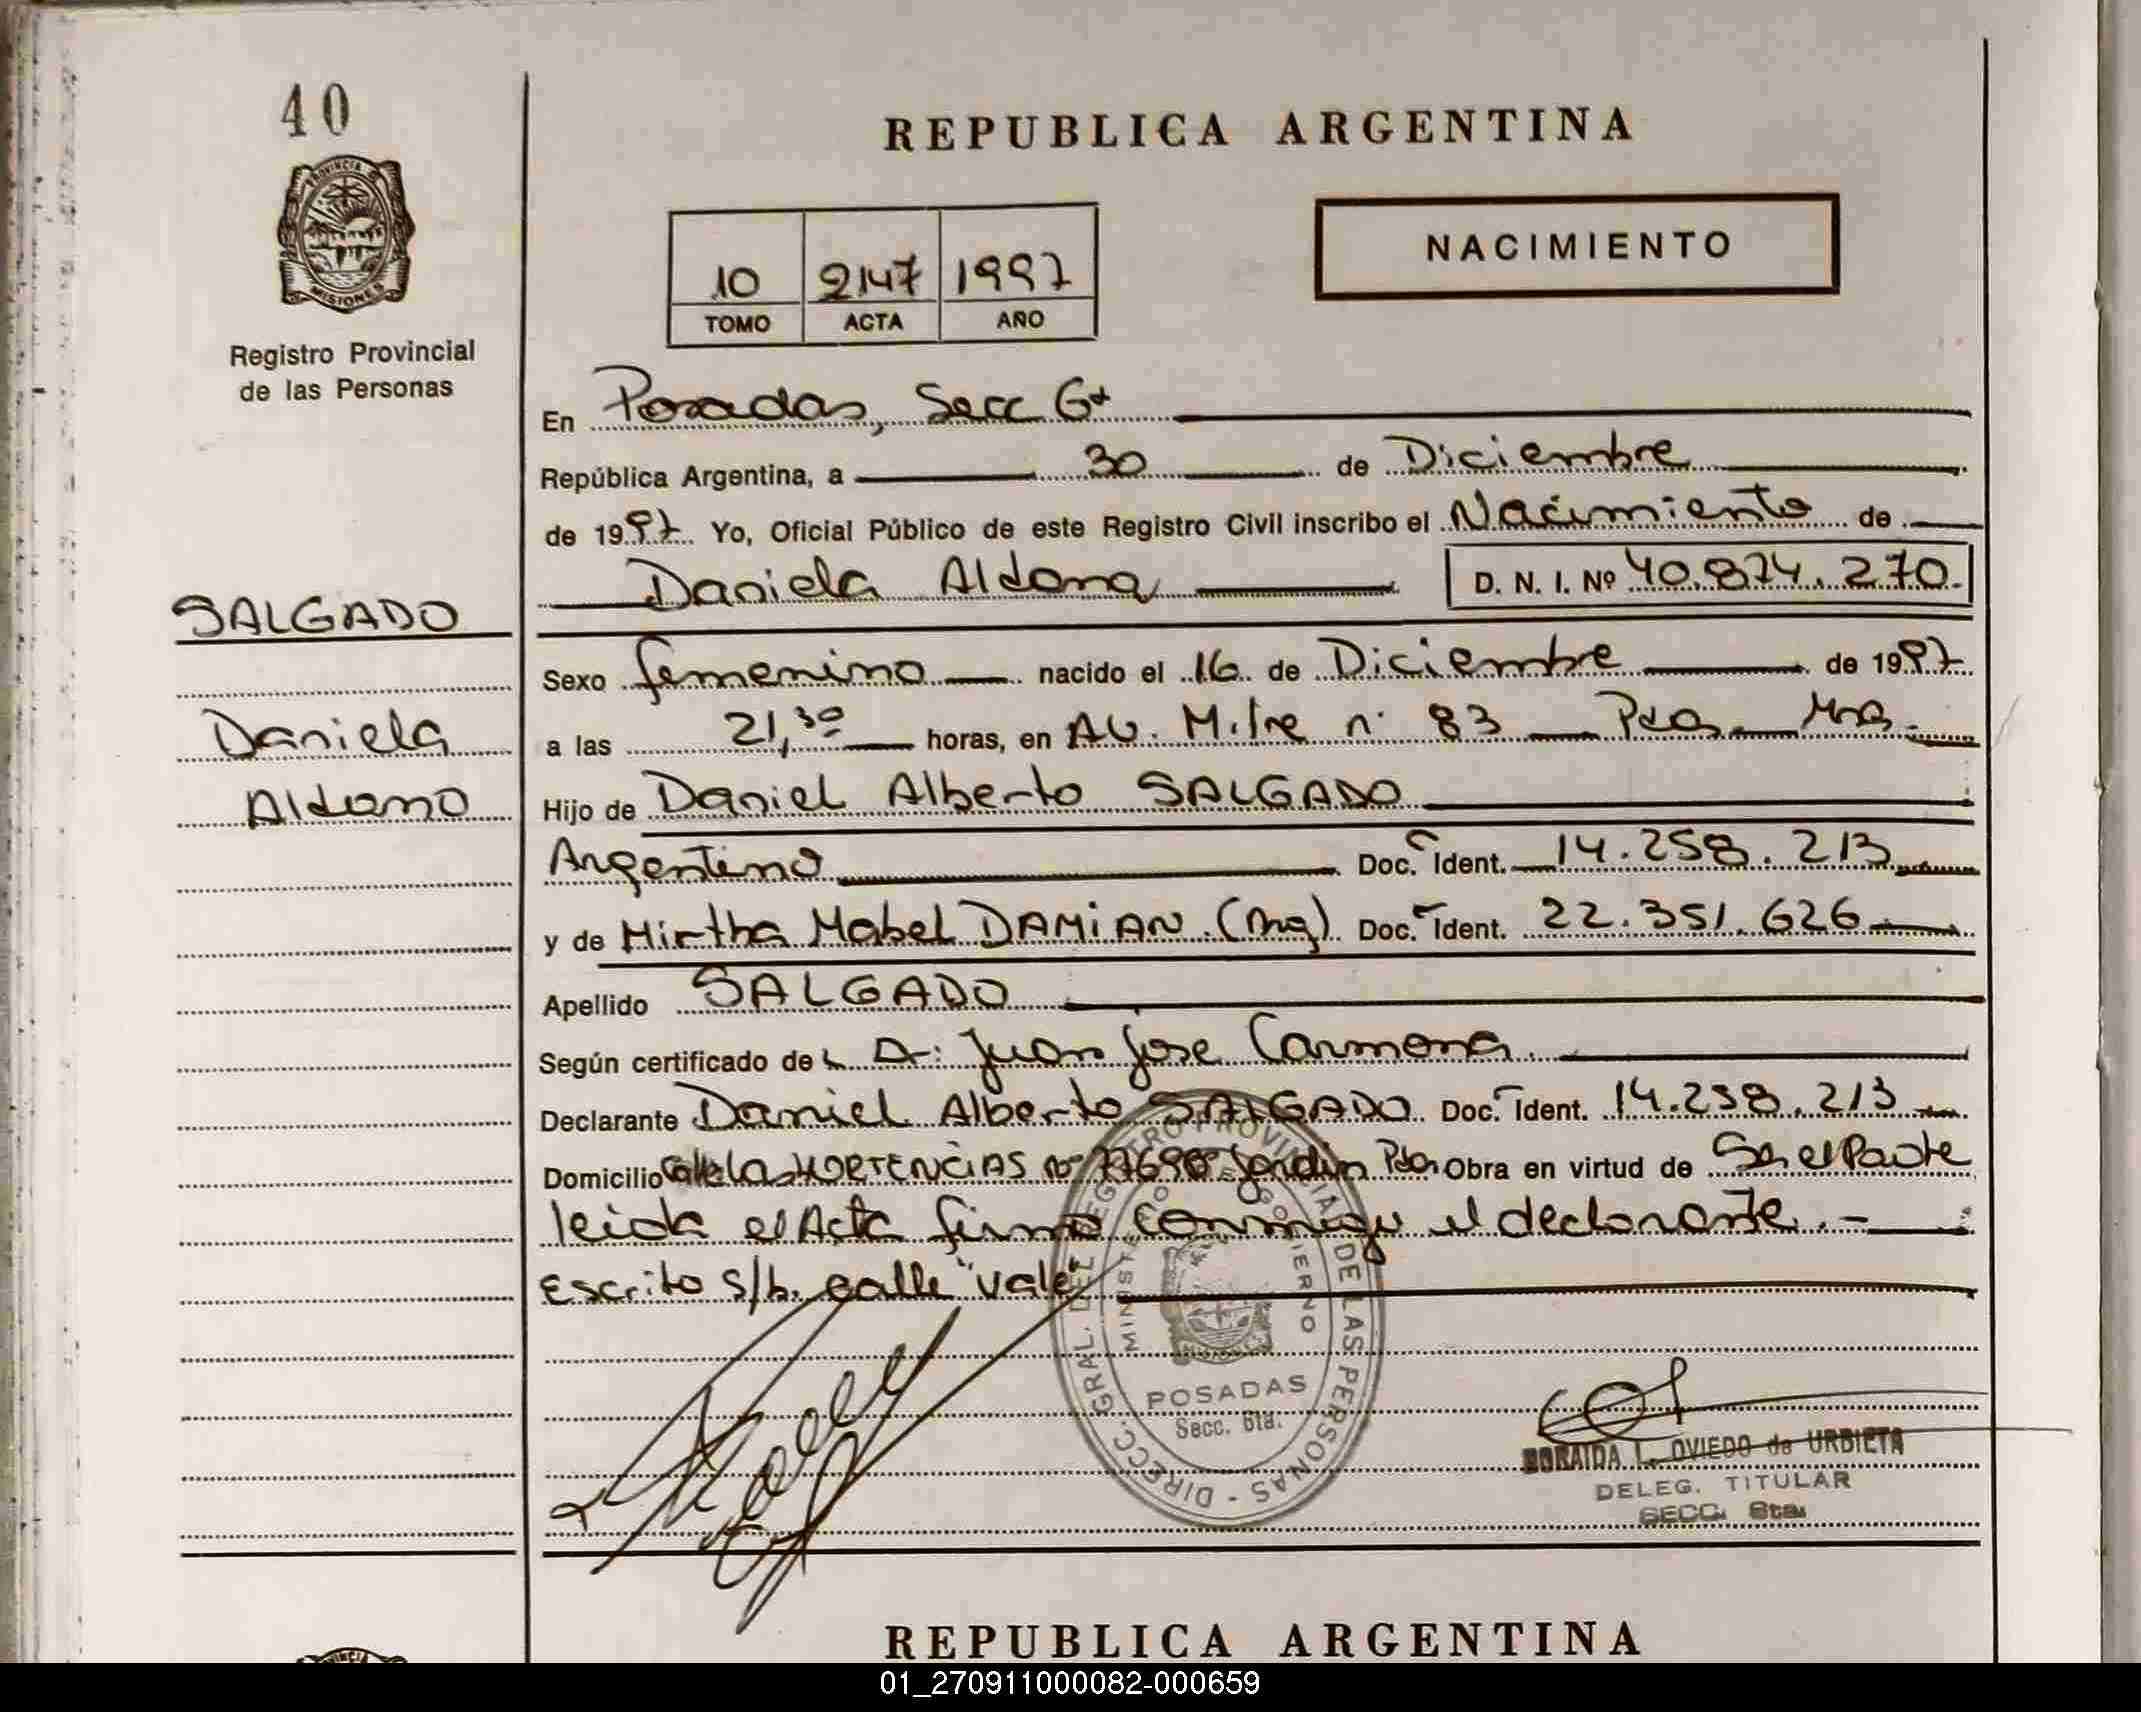 40
REPUBLICA ARGENTINA
PROVINCIA DE
MISIONES
Registro Provincial
de las Personas
NACIMIENTO
10 2147 1997
TOMO ACTA AÑO
En Posadas, Secc 6ª
República Argentina, a 30 de Diciembre
de 1997 Yo, Oficial Público de este Registro Civil inscribo el Nacimiento de
Daniela Aldana D. N. I. Nº 40.874.270
SALGADO
Daniela
Aldana
Sexo femenino nacido el 16 de Diciembre de 1997
a las 21,30 horas, en Av. Mitre nº 83 Pdas Mnes.
Hijo de Daniel Alberto SALGADO
Argentino Doc. Ident. 14.258.213
y de Mirtha Mabel DAMIAN (Arg) Doc. Ident. 22.351.626
Apellido SALGADO
Según certificado de Dr. Juan Jose Carmona.
Declarante Daniel Alberto SALGADO Doc. Ident. 14.258.213
Domicilio Calle Las HORTENCIAS Nº Jardin Pdas Obra en virtud de Ser el Padre
leida el Acta firma conmigo el declarante.-
Escrito s/b. calle "vale"
DIRECC. GRAL. DEL REGISTRO PROVINCIAL DE LAS PERSONAS
MINISTERIO DE GOBIERNO
POSADAS
Secc. 6ta.
ZORAIDA L. OVIEDO de URBIETA
DELEG. TITULAR
SECC. 6ta.
REPUBLICA ARGENTINA
01_270911000082-000659